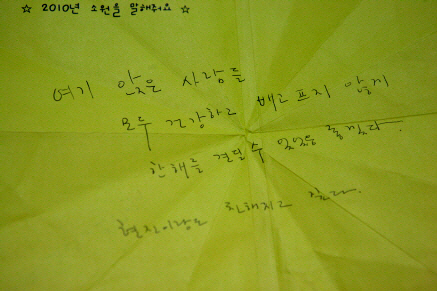 ☆ 2010년 소원을 말해줘요 ☆
여기 앉은 사람들
모두 건강하고 배고프지 않게
한해를 견딜 수 있었음 좋겠다.
현진이랑도 친해지고 싶다.